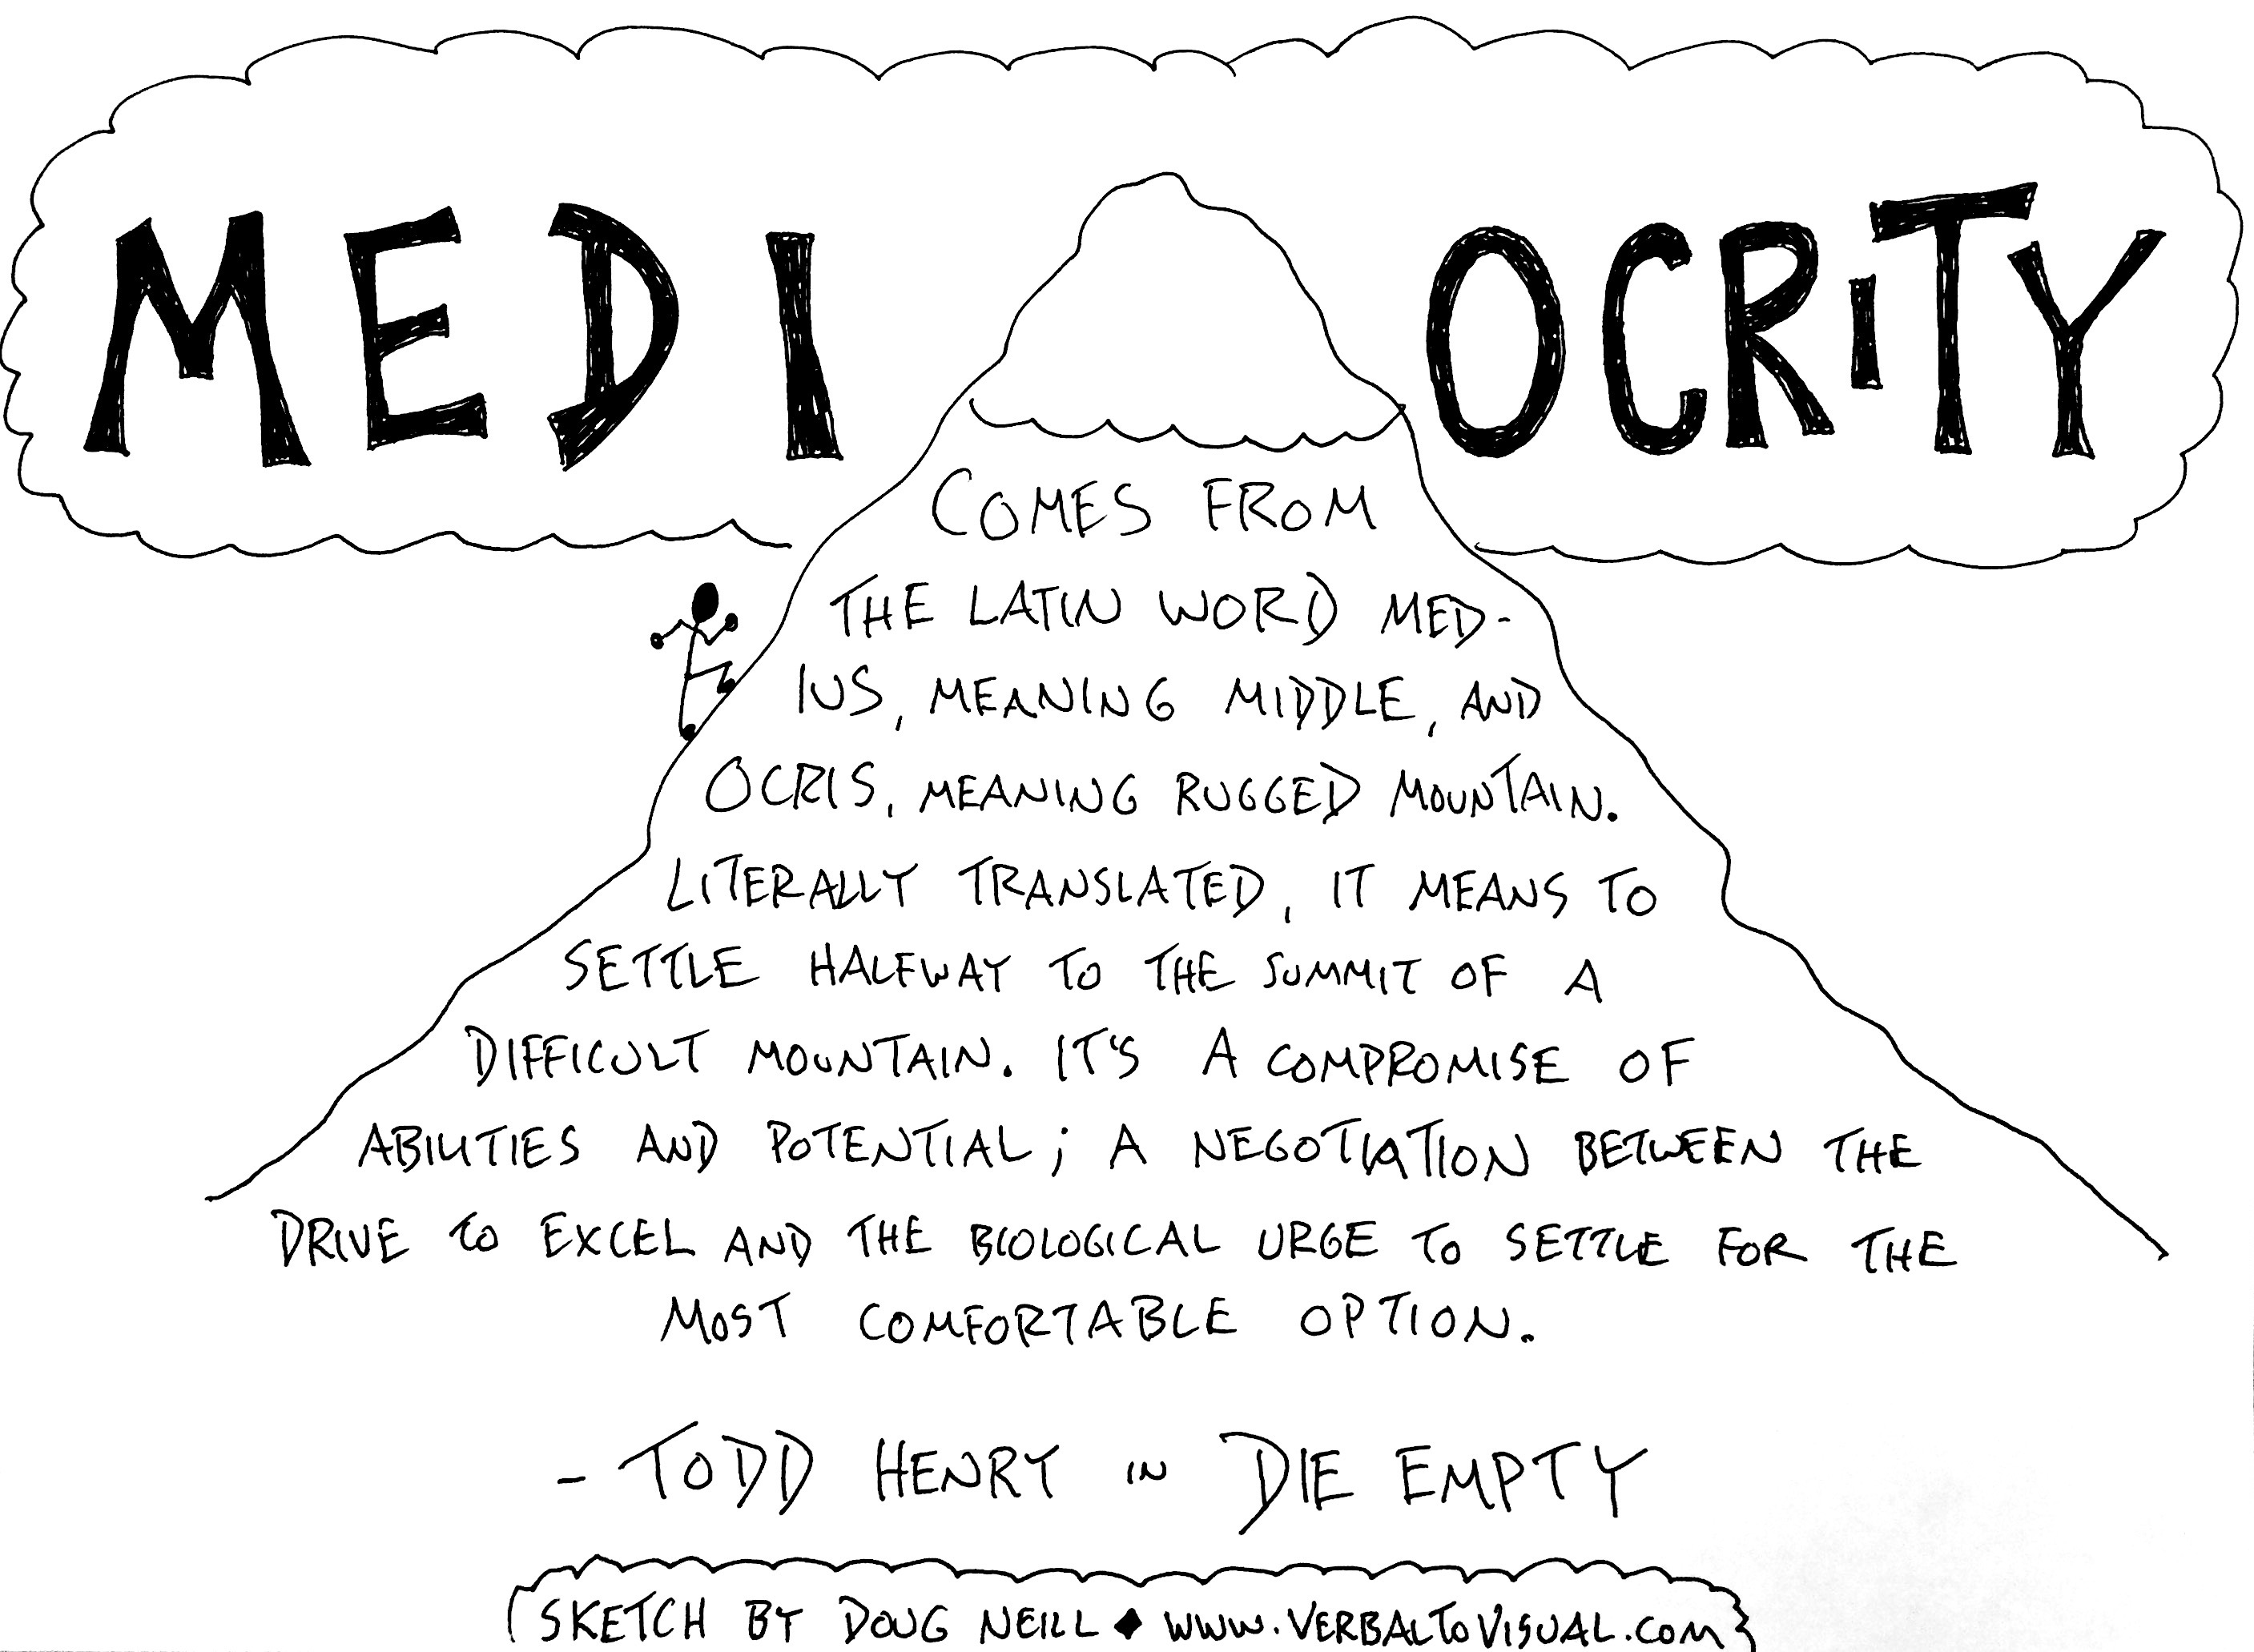 MEDIOCRITY
COMES FROM
THE LATIN WORD MED-
IUS, MEANING MIDDLE, AND
OCRIS, MEANING RUGGED MOUNTAIN.
LITERALLY TRANSLATED, IT MEANS TO
SETTLE HALFWAY TO THE SUMMIT OF A
DIFFICULT MOUNTAIN. IT'S A COMPROMISE OF
ABILITIES AND POTENTIAL; A NEGOTIATION BETWEEN THE
DRIVE TO EXCEL AND THE BIOLOGICAL URGE TO SETTLE FOR THE
MOST COMFORTABLE OPTION.
- TODD HENRY IN DIE EMPTY
SKETCH BY DOUG NEILL ◆ WWW.VERBALTOVISUAL.COM